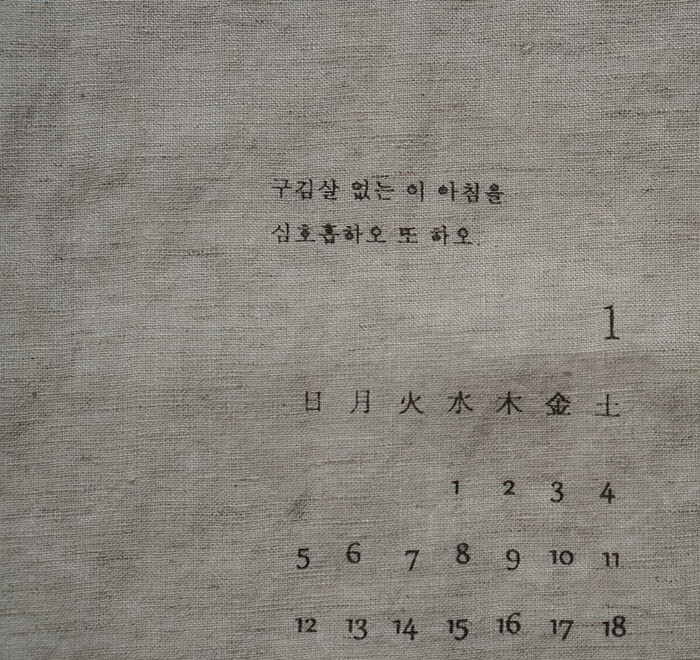 구김살 없는 이 아침을
심호흡하오 또 하오.
1
日 月 火 水 木 金 土
1 2 3 4
5 6 7 8 9 10 11
12 13 14 15 16 17 18